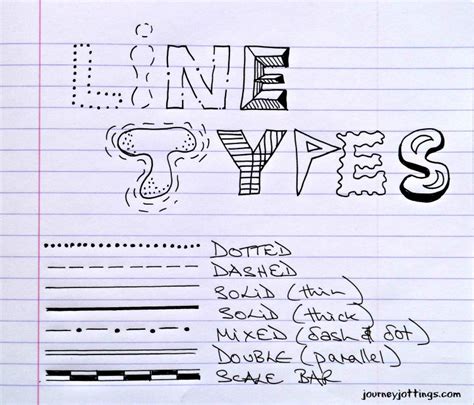 LiNE
TYPES
DOTTED
DASHED
SOLiD (thin)
SOLiD (thick)
MiXED (dash & dot)
DOUBLE (parallel)
SCALE BAR
journeyjottings.com